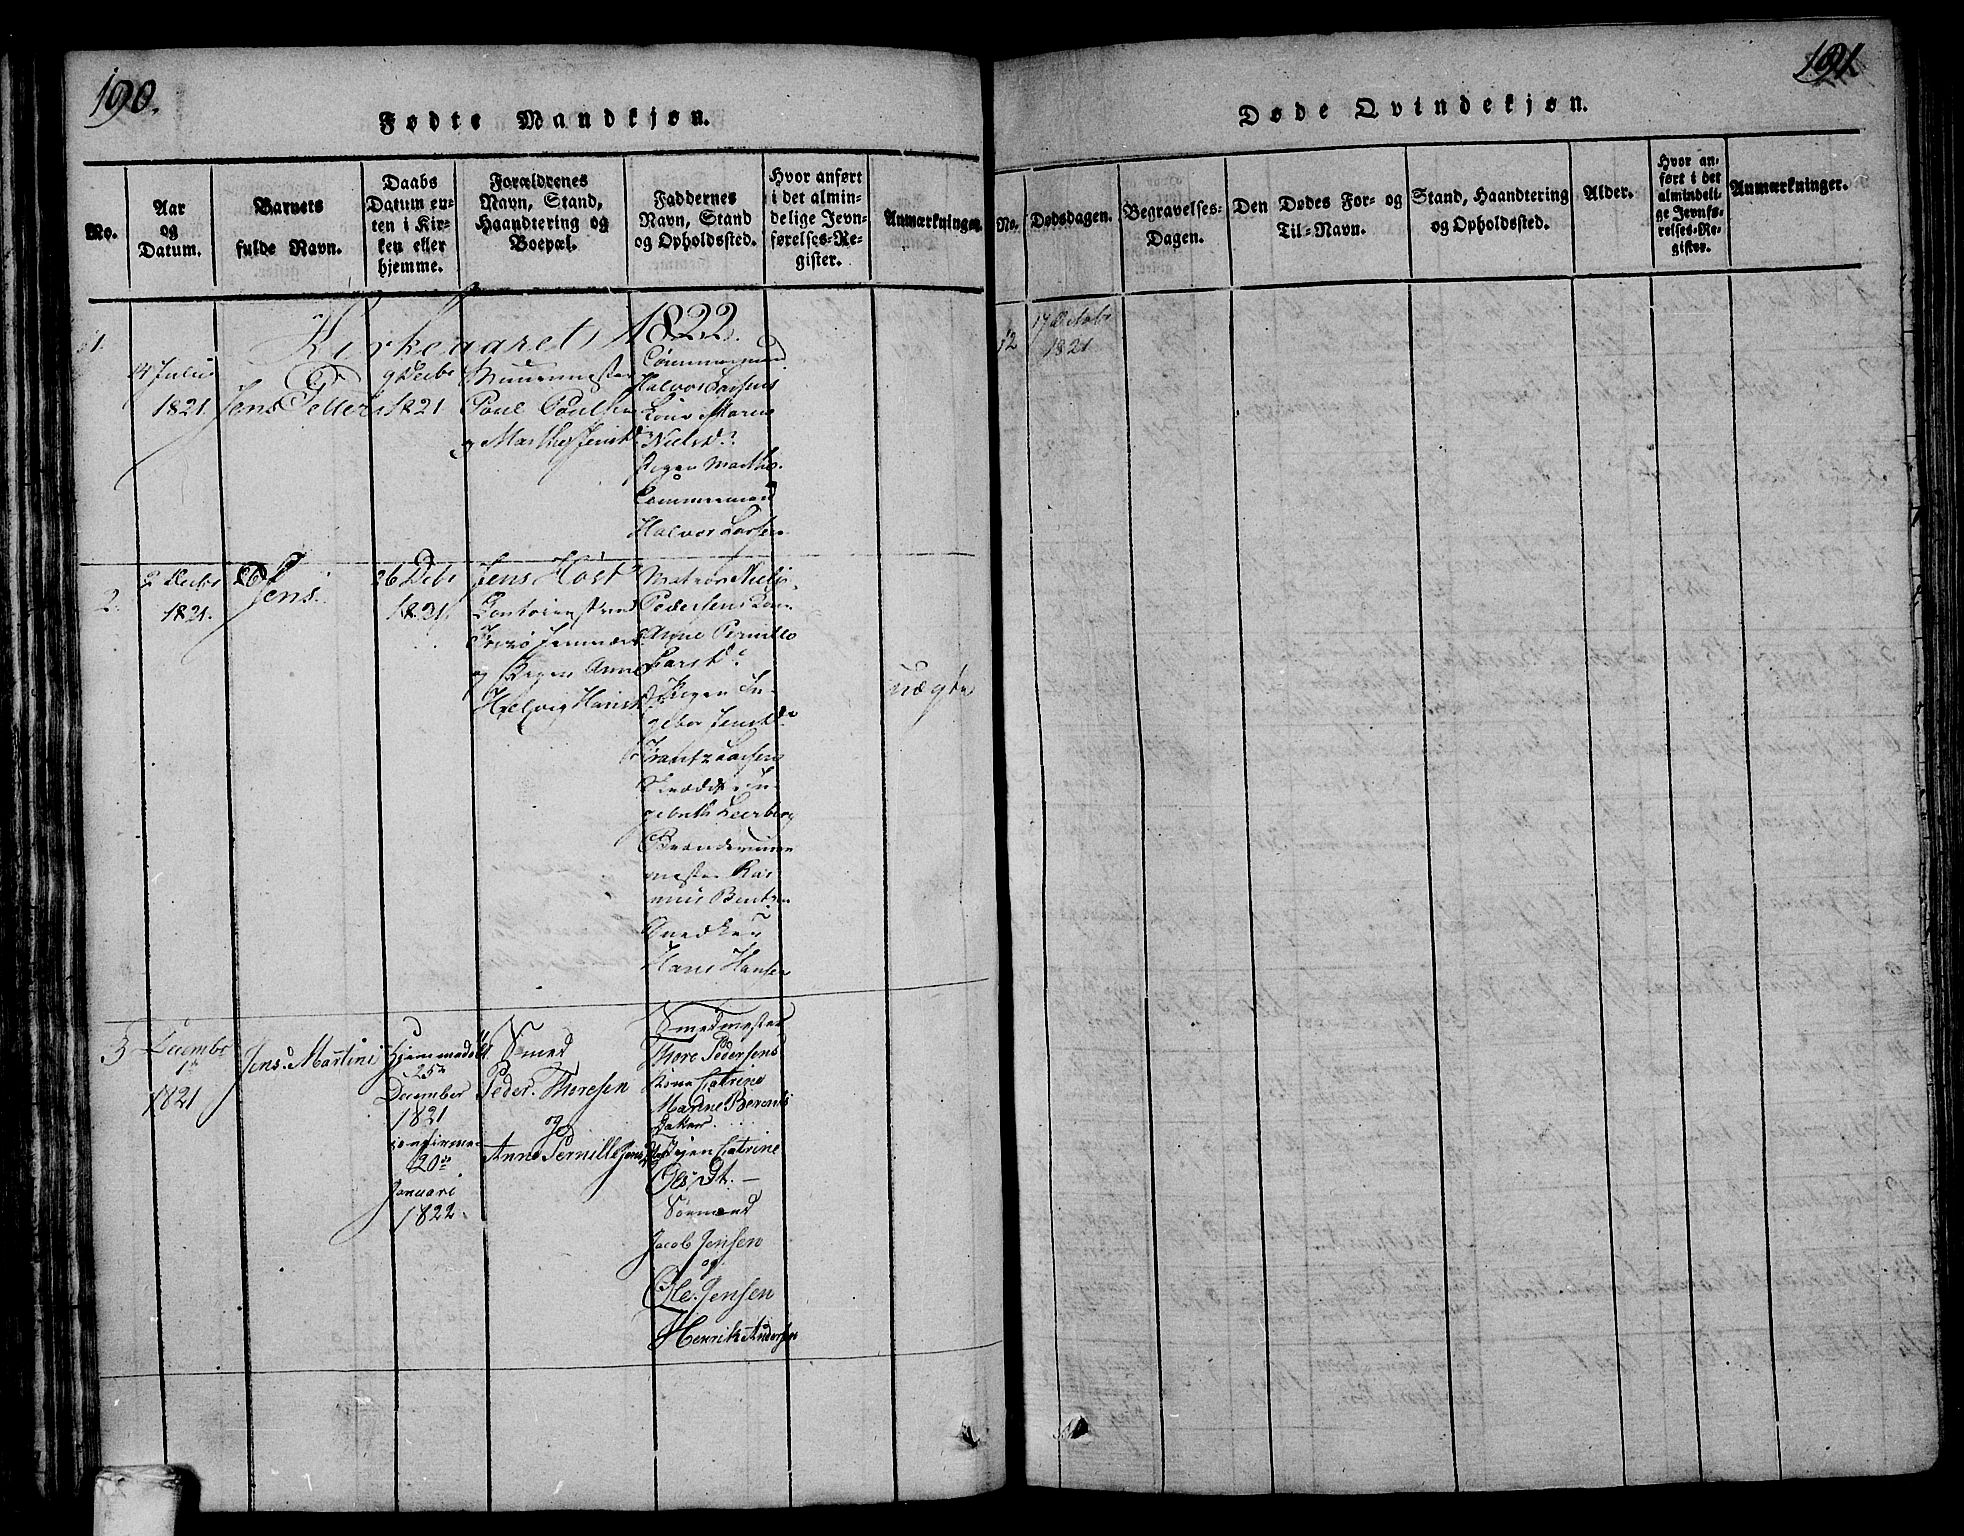 190.
Fødte Mandkjøn.
No.
Aar og Datum.
Barnets fulde Navn.
Daabs Datum enten i Kirken eller hjemme.
Forældrenes Navn, Stand, Haandtering og Boepæl.
Faddernes Navn, Stand og Opholdssted.
Hvor anført i det almindelige Jevnførelses-Register.
Anmærkninger.
Kirkeaaret 1822.
1.
14 Julii
1821.
Jens Petter
9 Decbr
1821
Muurmester
Poul Poulsen
og Marthe Jensd
Halvor Larsens
Kone Maren
Nielsd.
Pigen Marthe
Halvor Larsen
2.
2 Decbr
1821.
Jens.
26 Debr
1821.
Jens Høst
og Pigen Anne
Helvig Hansd
Matros Niels
Pedersens Kone
Anne Pernille
Larsd.
Pigen In-
gebor Jensd.
Frantz Larsens
mester Ras-
mus Bentzen
Snedker
Hans Hansen
uægte
3
Decembr
1821
Jens Martin
hjemmedøbt
25de
December
1821
confirme-
20de
Januari
1822.
Smed
Peder Thoresen
og
Anne Pernille Jensd.
Smedmester
Thore Pedersens
Kone Catrine
Marine Berents
datter
Pigen Catrine
Olsdt. —
Sømænd
Jacob Jensen
og
Ole Jensen
Henrik Andersen
191.
Døde Qvindekjøn.
No.
Dødsdagen.
Begravelses-Dagen.
Den Dødes For- og Til-Navn.
Stand, Haandtering og Opholdssted.
Alder.
Hvor anført i det almindelige Jevnførelses-Register.
Anmærkninger.
12
17 Octobr
1821